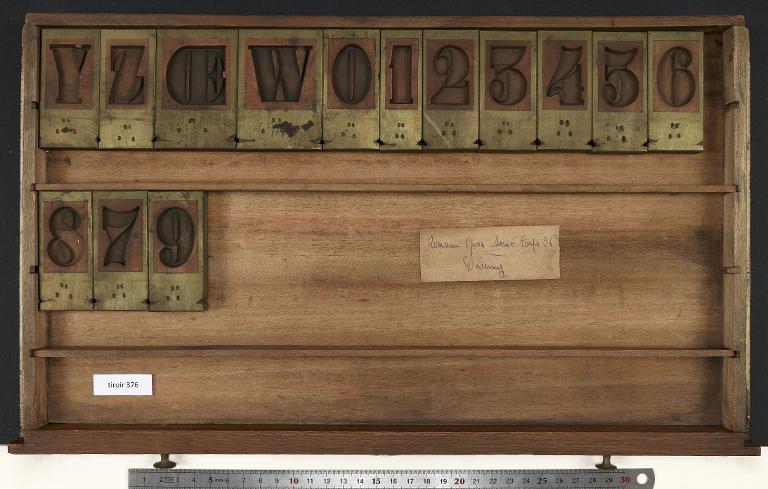 Y Z Œ W 0 1 2 3 4 5 6
8 7 9
Romain Gras
tiroir 376
1 2 3 4 5 6 7 8 9 10 11 12 13 14 15 16 17 18 19 20 21 22 23 24 25 26 27 28 29 30